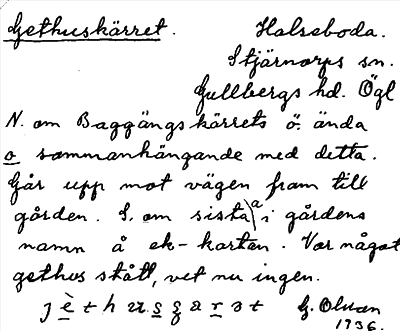 Gethuskärret. Halseboda.
Stjärnorps sn.
Gullbergs hd. Ögl
N. om Baggängskärrets ö. ända
o sammanhängande med detta.
Går upp mot vägen fram till
gården. S. om sista a i gårdens
namn å ek-kartan. Var något
gethus stått, vet nu ingen.
G. Olman
1936.